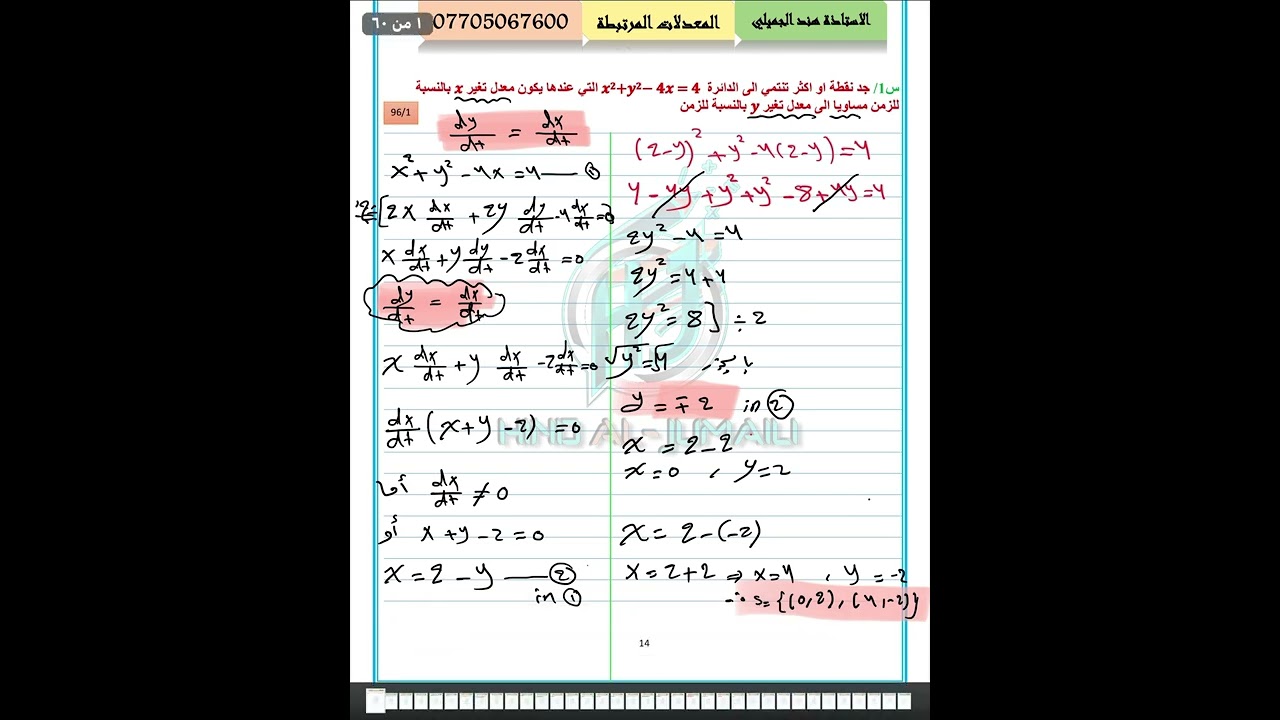 ١ من ٦٠
07705067600
المعدلات المرتبطة
الاستاذة هند الجميلي
س1/ جد نقطة او اكثر تنتمي الى الدائرة x²+y²− 4x = 4 التي عندها يكون معدل تغير x بالنسبة
للزمن مساويا الى معدل تغير y بالنسبة للزمن
96/1
dy/dt = dx/dt
x² + y² - 4x = 4 —— ①
[2x dx/dt + 2y dy/dt - 4 dx/dt = 0] ÷2
x dx/dt + y dy/dt - 2 dx/dt = 0
dy/dt = dx/dt
x dx/dt + y dx/dt - 2 dx/dt = 0
dx/dt (x + y - 2) = 0
أما dx/dt ≠ 0
أو x + y - 2 = 0
x = 2 - y —— ②
in ①
(2-y)² + y² - 4(2-y) = 4
4 - 4y + y² + y² - 8 + 4y = 4
2y² - 4 = 4
2y² = 4 + 4
2y² = 8] ÷ 2
√y² = √4 بالجذر
y = ∓ 2 in ②
HIND AL-JUMAILI
x = 2 - 2
x = 0 , y = 2
x = 2 - (-2)
x = 2 + 2 ⇒ x = 4 , y = -2
∴ S = {(0,2), (4,-2)}
14